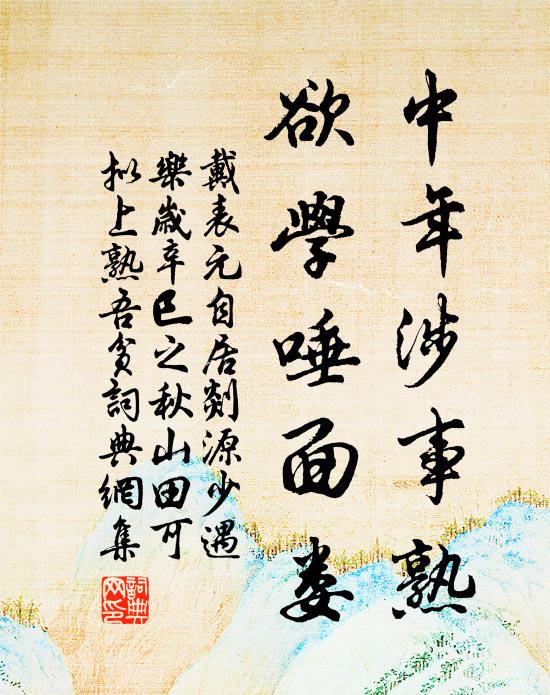 中年涉事熟
欲學唾面婁
戴表元自居剡源少遇
樂歲辛巳之秋山田可
拟上熟吾貧詞典網集
詞典
网印